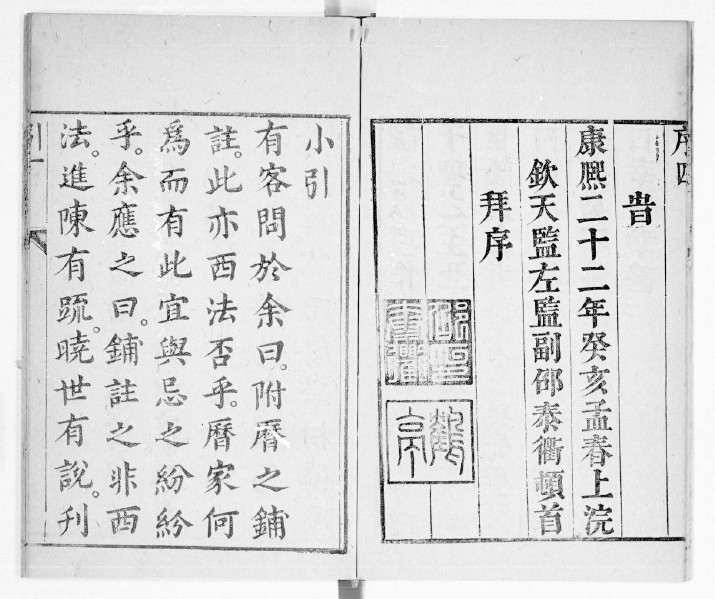 序四
旹
康熙二十二年癸亥孟春上浣
欽天監左監副邵泰衢頓首
拜序
小引
有客問於余曰。附曆之鋪
註。此亦西法否乎。曆家何
爲而有此宜與忌之紛紛
乎。余應之曰。鋪註之非西
法。進陳有疏。曉世有說。刋
引一